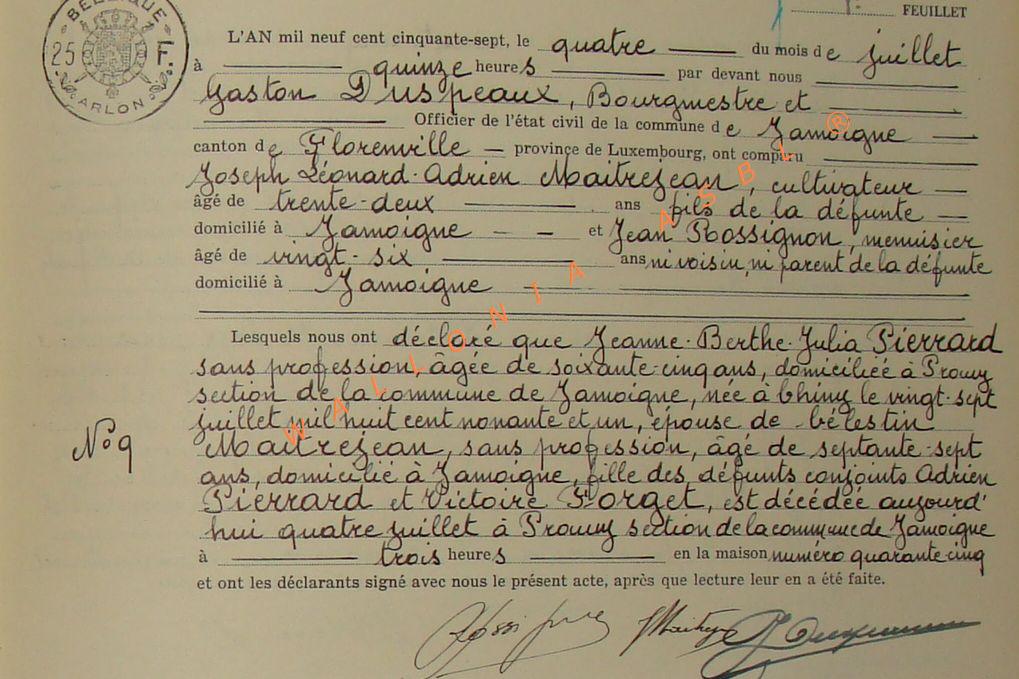 BELGIQUE
25 F.
ARLON
FEUILLET
L'AN mil neuf cent cinquante-sept, le quatre du mois de juillet
à quinze heures par devant nous
Gaston Duspeaux, Bourgmestre et
Officier de l'état civil de la commune de Jamoigne
canton de Florenville province de Luxembourg, ont comparu
Joseph Léonard-Adrien Maitrejean, cultivateur
âgé de trente-deux ans fils de la défunte
domicilié à Jamoigne et Jean Rossignon, menuisier
âgé de vingt-six ans, ni voisin, ni parent de la défunte
domicilié à Jamoigne
Lesquels nous ont déclaré que Jeanne-Berthe-Julia Pierrard
sans profession, âgée de soixante-cinq ans, domiciliée à Prouvy
section de la commune de Jamoigne, née à Chiny le vingt-sept
juillet mil huit cent nonante et un, épouse de Célestin
Maitrejean, sans profession, âgé de septante-sept
ans, domicilié à Jamoigne, fille des défunts conjoints Adrien
Pierrard et Victoire Forget, est décédée aujourd'
hui quatre juillet à Prouvy section de la commune de Jamoigne
à trois heures en la maison numéro quarante-cinq
et ont les déclarants signé avec nous le présent acte, après que lecture leur en a été faite.
N° 9
WALLONIA ASBL ®